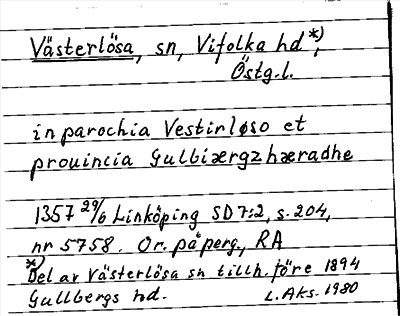 Västerlösa, sn, Vifolka hd *),
Östg.l.
in parochia Vestirløso et
prouincia Gulbiærgzhæradhe
1357 29/6 Linköping SD 7:2, s. 204,
nr 5758. Or. på perg., RA
*) Del av Västerlösa sn tillh. före 1894
Gullbergs hd. L. Aks. 1980